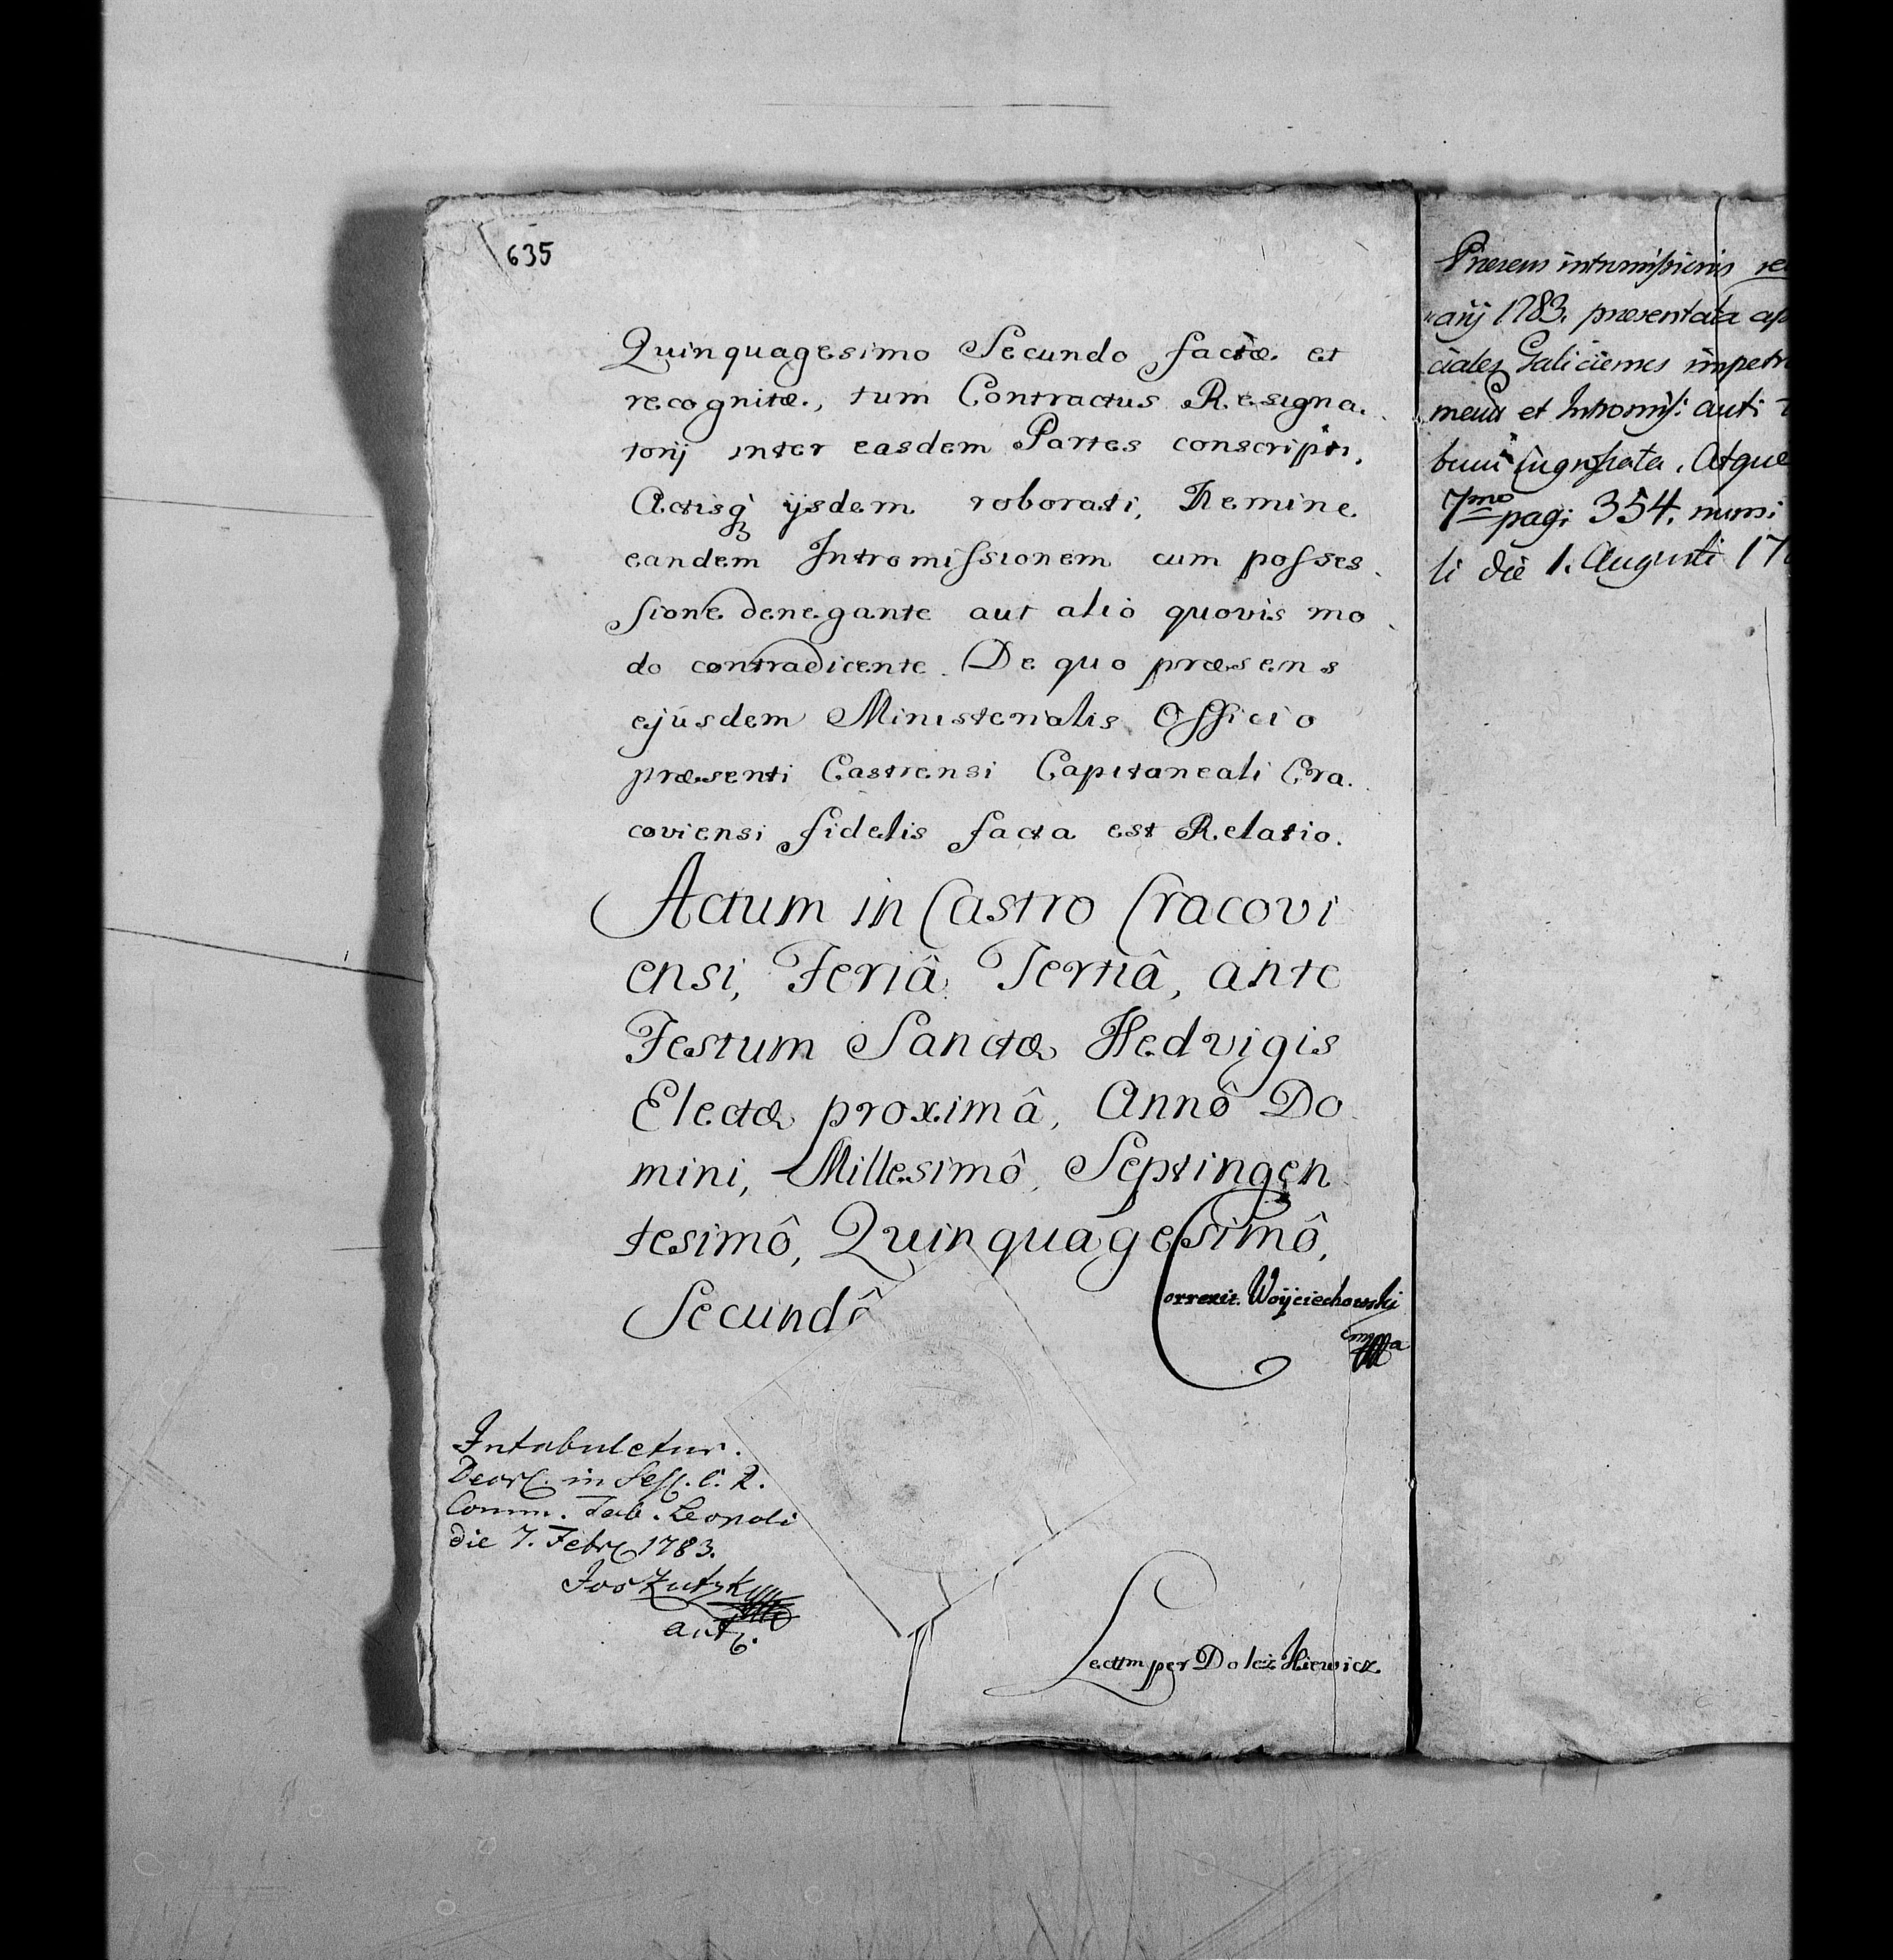 635
Quinquagesimo Secundo factæ et
recognitæ, tum Contractus Resigna.
torij inter easdem Partes conscripti,
Actisq́ ijsdem roborati, Nemine
eandem Intromissionem cum posses
sione denegante aut aliò quovis mo
do contradicente. De quo præsens
ejusdem Ministerialis Officio
præsenti Castrensi Capitaneali Cra.
coviensi fidelis facta est Relatio.
Actum in Castro Cracovi
ensi, Feriâ Tertiâ, ante
Festum Sanctæ Hedvigis
Electæ proximâ, Annô Do
mini, Millesimô, Septingen
tesimô, Quinquagesimô,
Secundô
Correxit Woyciechowski
mppa
Intabuletur.
in Sess. C. R.
Comm. Tab. Leopoli
die 7. Febr 1783.
Lectum per
Præsens intromissionis
arij 1783. præsentata
ciales Galicienses impetr
et Intromiss: auti
ingrossata. Atque
7mo pag: 354.
li die 1. Augusti 17